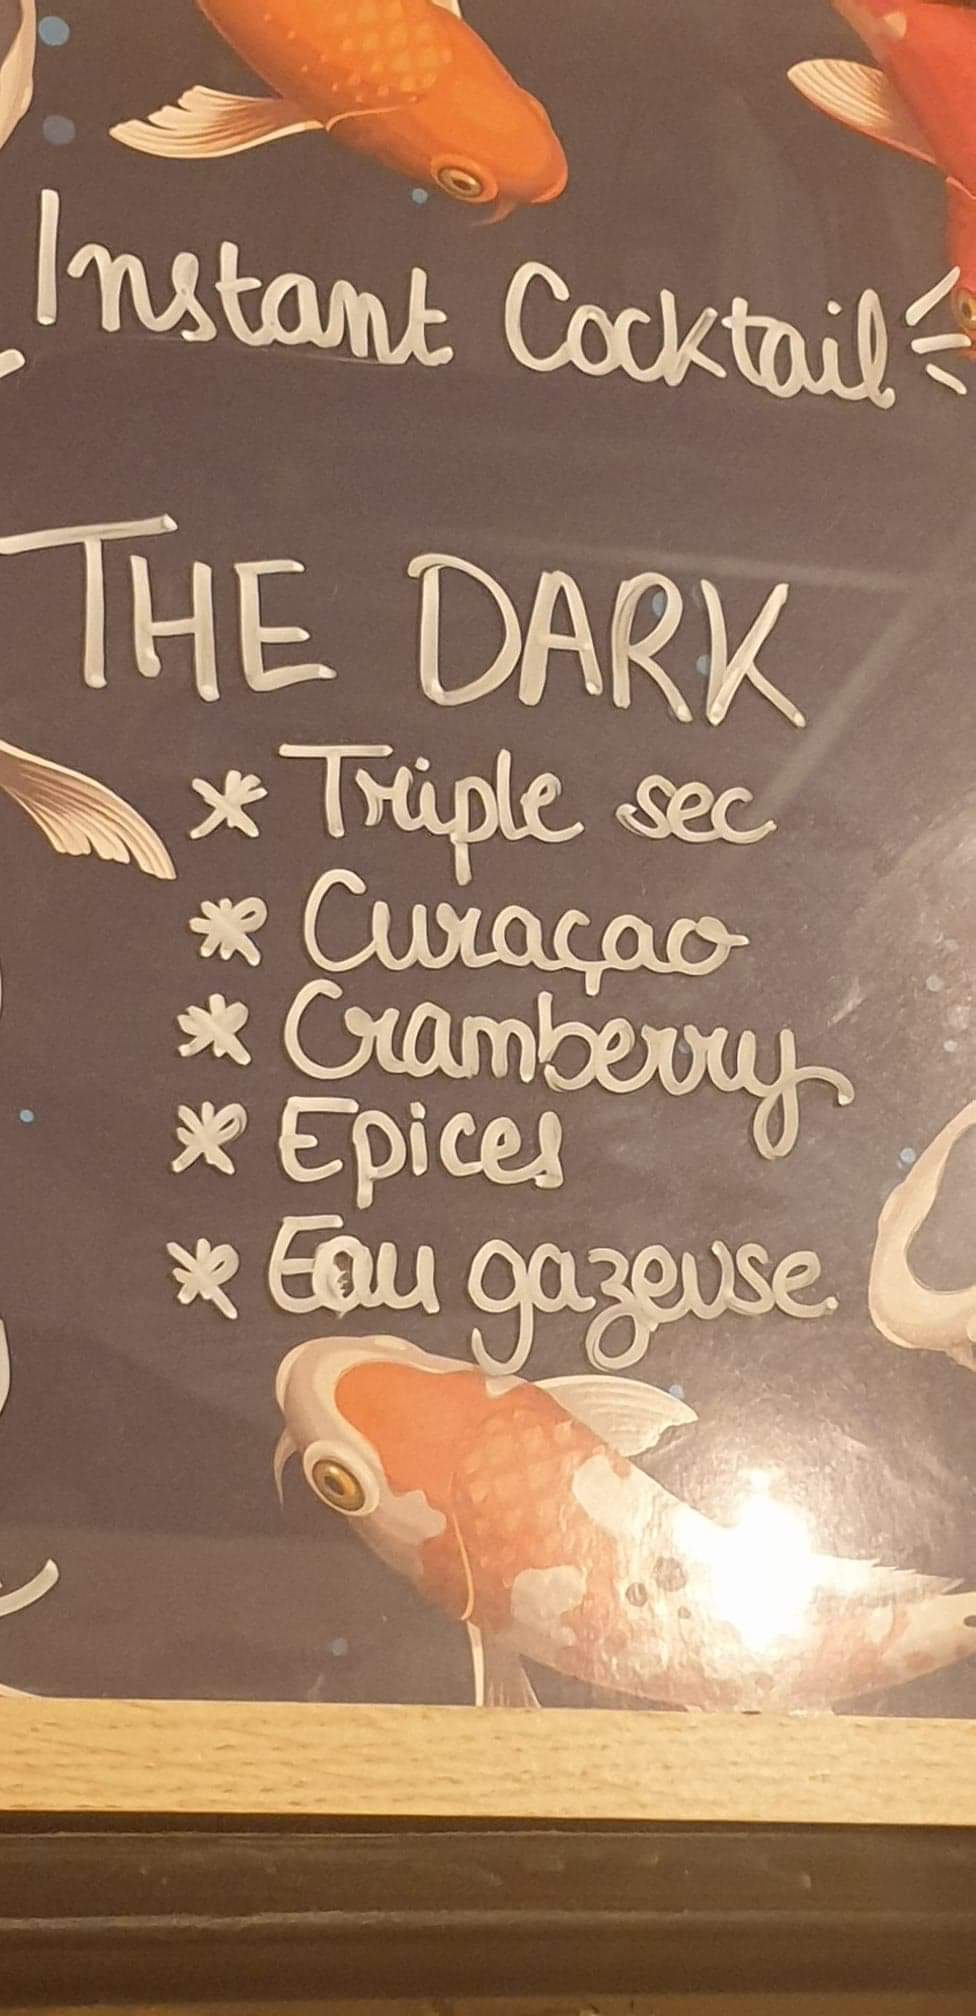 Instant Cocktail
THE DARK
* Triple sec
* Curaçao
* Cramberry
* Epices
* Eau gazeuse